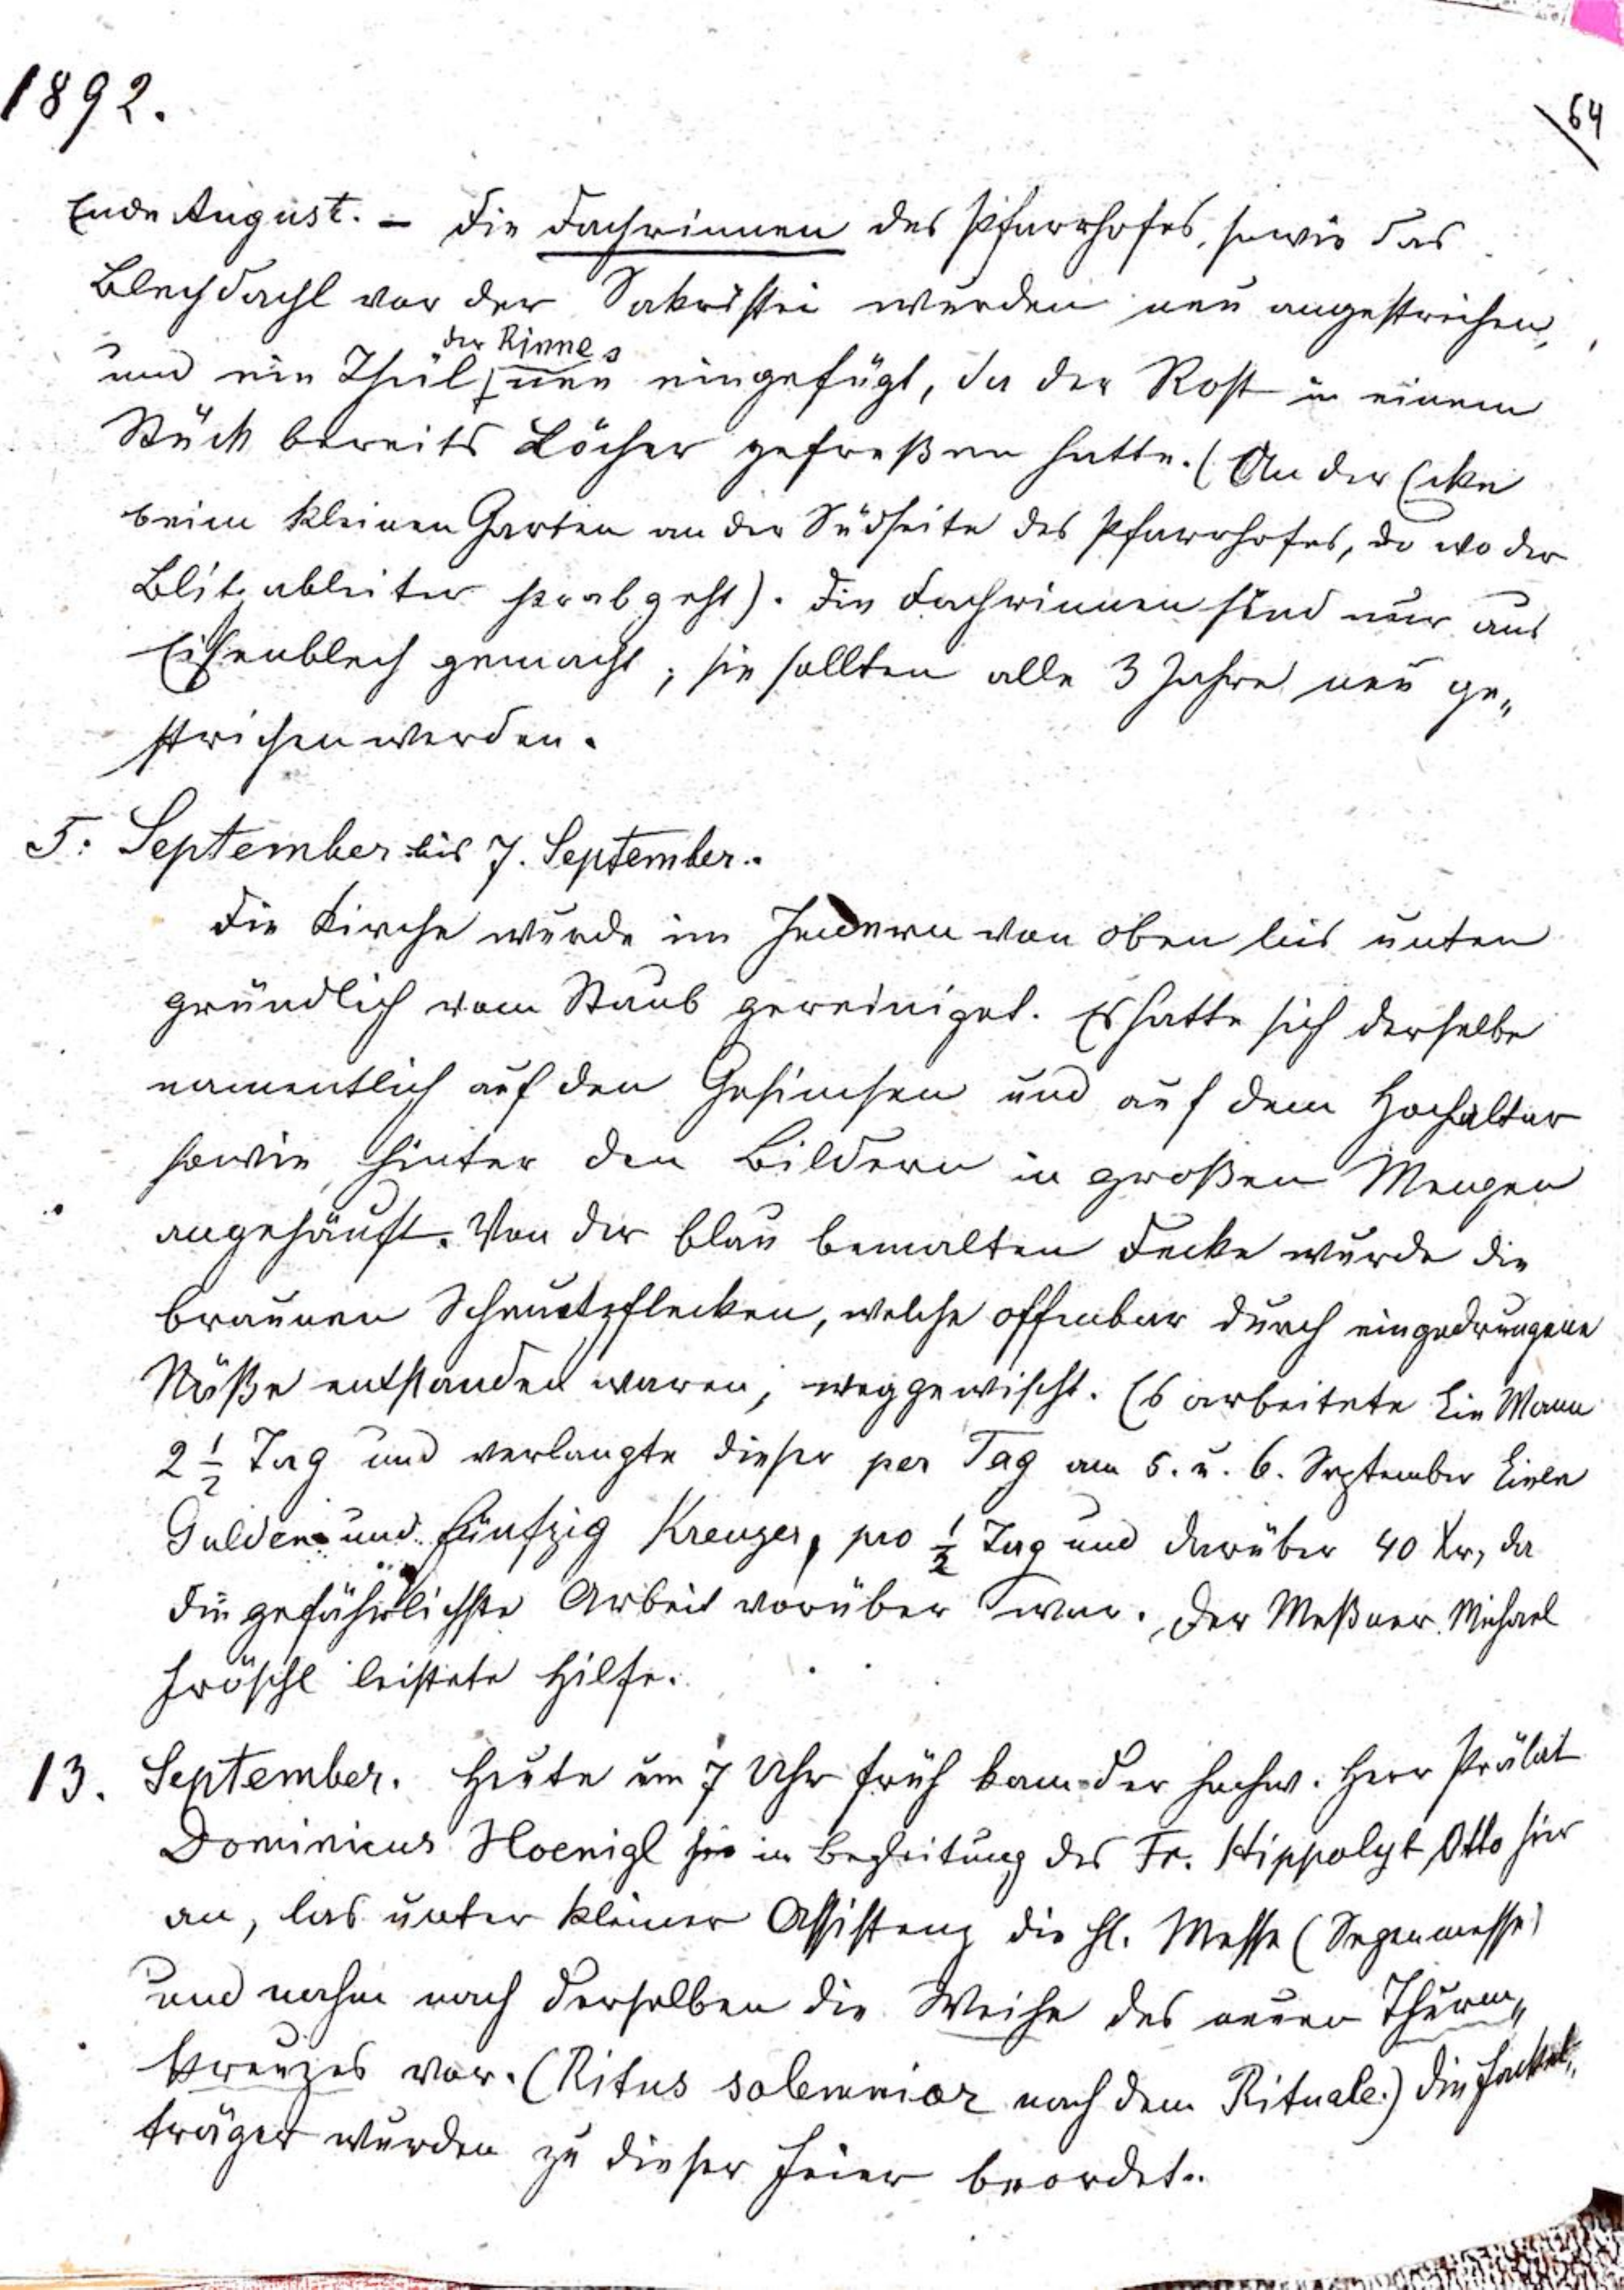 1892.
64
Ende August. – Die Dachrinnen des Pfarrhofes, sowie das
Blechdachl vor der Sakristei wurden neu angestrichen,
der Rinne
und ein Theil neu eingefügt, da der Rost in einem
Stück bereits Löcher gefreßen hatte. (An der Ecke
beim kleinen Garten an der Südseite des Pfarrhofes, do wo der
Blitzableiter herabgeht). Die Dachrinnen sind nur aus
Eisenblech gemacht; sie sollten alle 3 Jahre neu ge„
strichen werden.
5. September bis 7. September.
Die Kirche wurde im Innern von oben bis unten
gründlich vom Staub gereiniget. Es hatte sich derselbe
namentlich auf den Gesimsen und auf dem Hochaltar
sowie hinter den Bildern in großen Mengen
angehäuft. Von der blau bemalten Decke wurde die
braunen Schmutzflecken, welche offenbar durch eingedrungene
Näße entstanden waren, weggewischt. Es arbeitete Ein Mann
2 1/2 Tag und verlangte dieser per Tag am 5. u. 6. September Einen
Gulden und fünfzig Kreuzer, pro 1/2 Tag und darüber 40 Xr, da
die gefährlichste Arbeit vorüber war. Der Meßner Michael
Fröschl leistete Hilfe.
13. September. Heute um 7 Uhr früh kam der hochw. Herr Prälat
Dominicus Hoenigl hie in Begleitung des Fr. Hippolyt Otto hier
an, las unter kleiner Assistenz die hl. Messe (Segenmesse)
und nahm nach derselben die Weihe des neuen Thurm„
kreuzes vor. (Ritus solemnior nach dem Rituale.) Die Fackel„
träger wurden zu dieser Feier beordet.